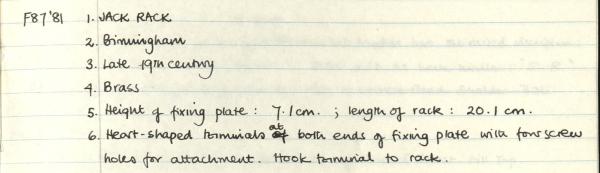 F87'81 1. JACK RACK
2. Birmingham
3. Late 19th century
4. Brass
5. Height of fixing plate : 7.1cm. ; length of rack : 20.1 cm.
6. Heart-shaped terminals at both ends of fixing plate with four screw
holes for attachment. Hook terminal to rack.